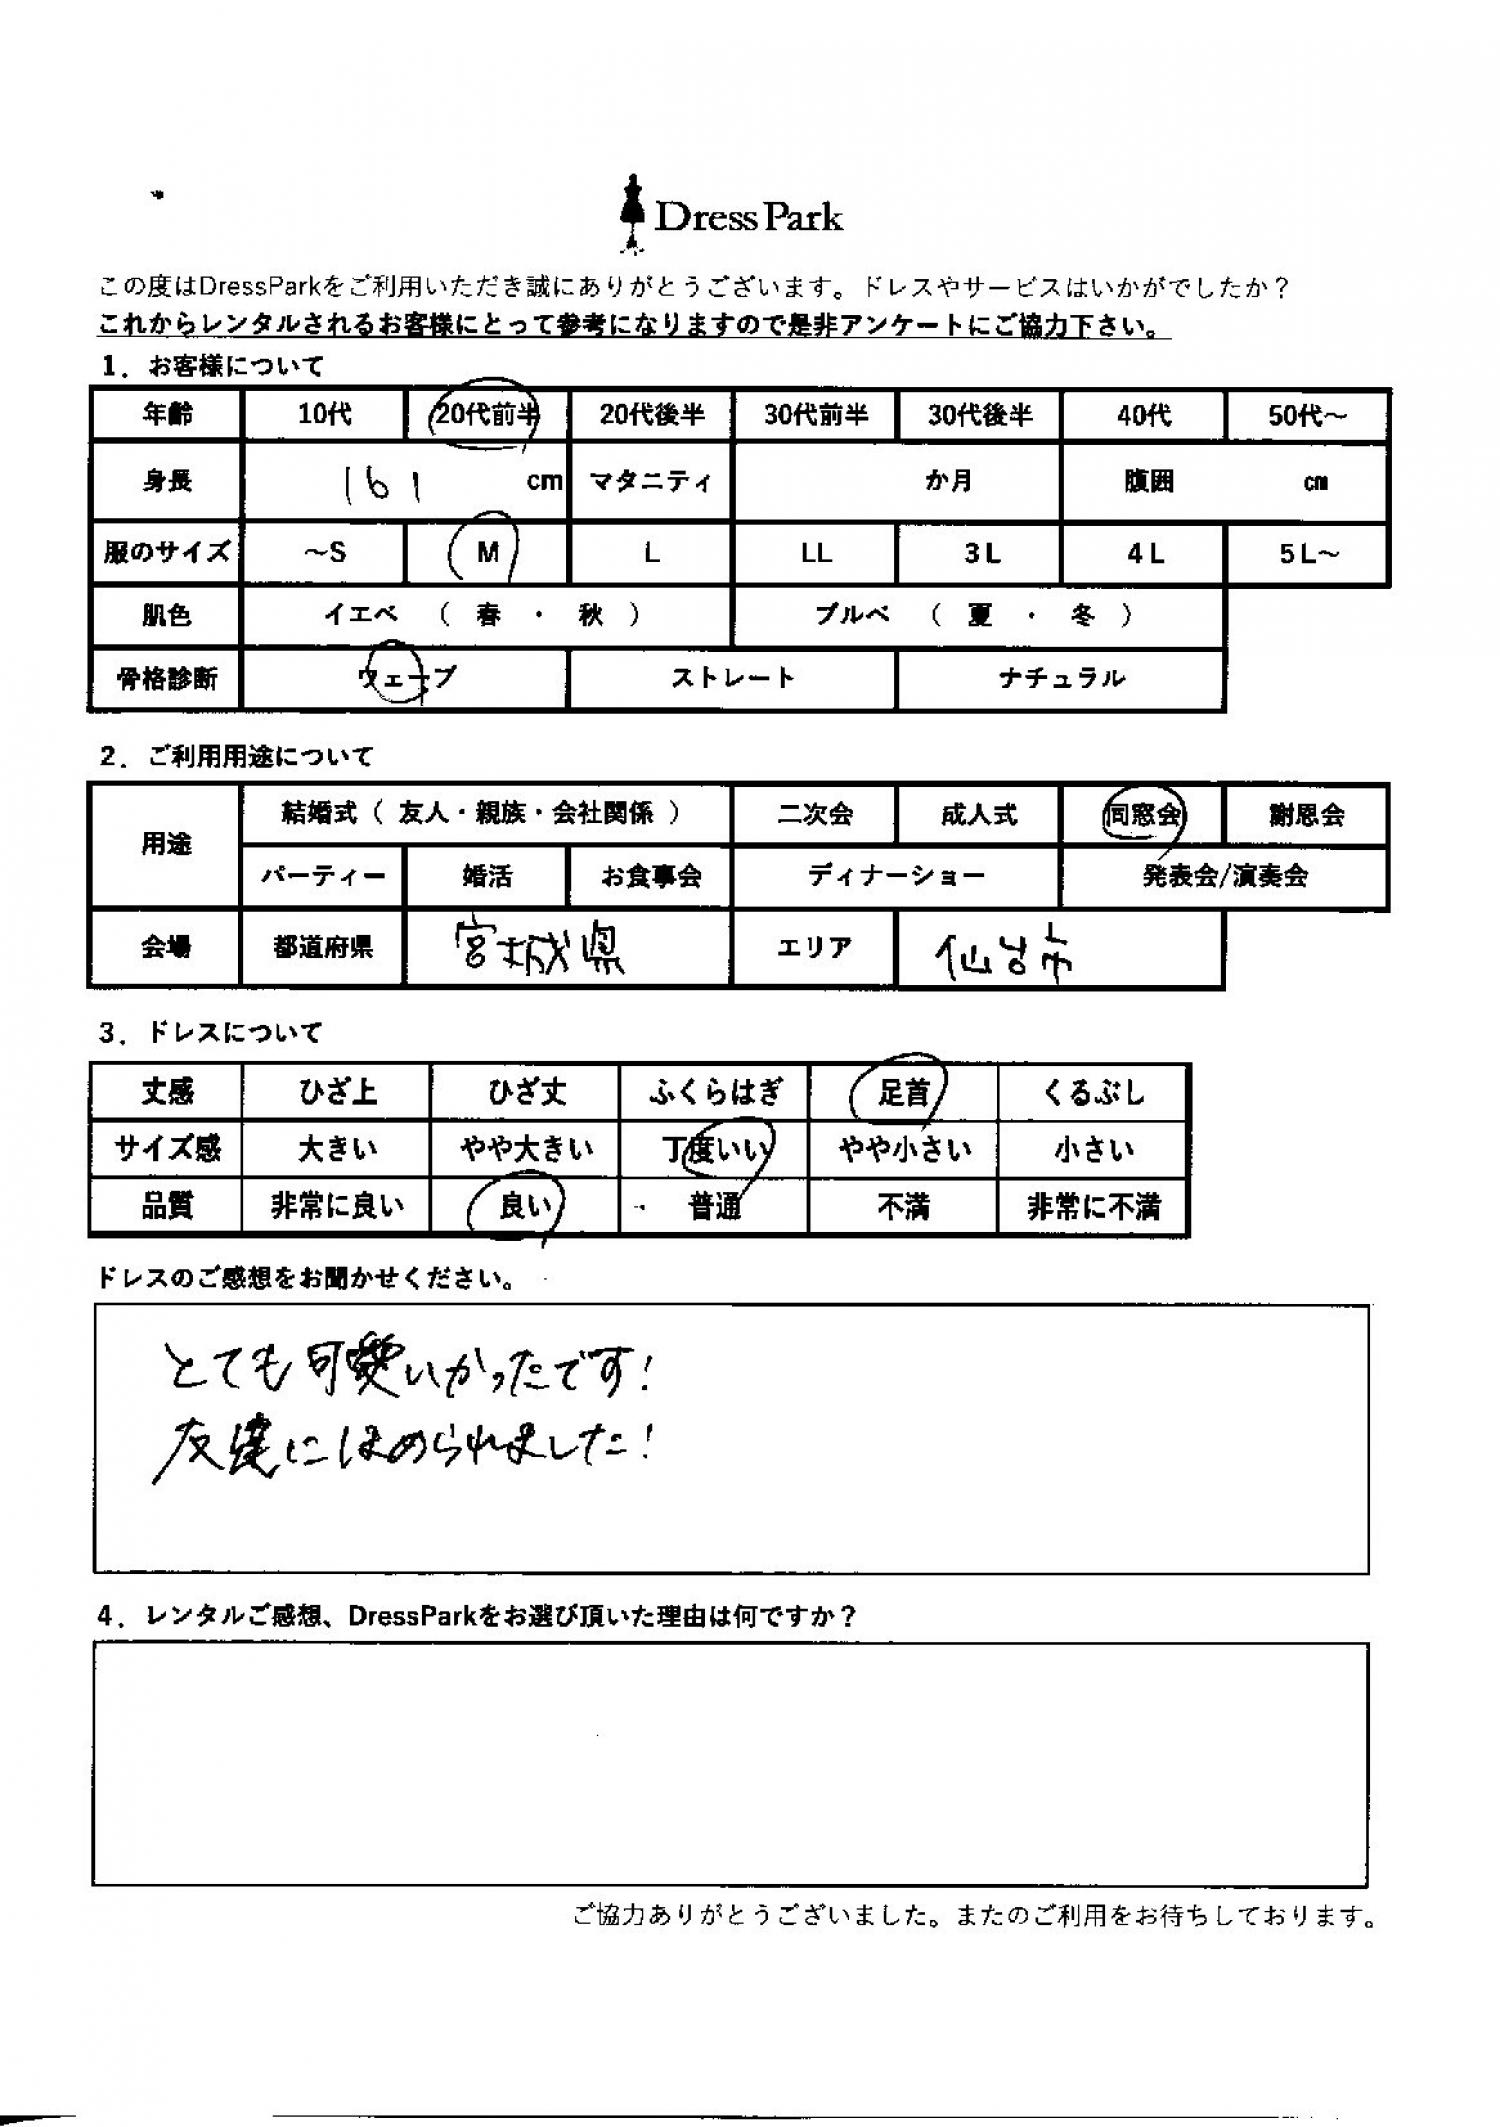 Dress Park
この度はDressParkをご利用いただき誠にありがとうございます。ドレスやサービスはいかがでしたか？
これからレンタルされるお客様にとって参考になりますので是非アンケートにご協力下さい。
1．お客様について
年齢 10代 20代前半 20代後半 30代前半 30代後半 40代 50代～
身長 161 cm マタニティ か月 腹囲 cm
服のサイズ ～S M L LL 3L 4L 5L～
肌色 イエベ （ 春 ・ 秋 ） ブルベ （ 夏 ・ 冬 ）
骨格診断 ウェーブ ストレート ナチュラル
2．ご利用用途について
用途 結婚式（ 友人・親族・会社関係 ） 二次会 成人式 同窓会 謝恩会
パーティー 婚活 お食事会 ディナーショー 発表会/演奏会
会場 都道府県 宮城県 エリア 仙台市
3．ドレスについて
丈感 ひざ上 ひざ丈 ふくらはぎ 足首 くるぶし
サイズ感 大きい やや大きい 丁度いい やや小さい 小さい
品質 非常に良い 良い 普通 不満 非常に不満
ドレスのご感想をお聞かせください。
とても可愛いかったです！
友達にほめられました！
4．レンタルご感想、DressParkをお選び頂いた理由は何ですか？
ご協力ありがとうございました。またのご利用をお待ちしております。